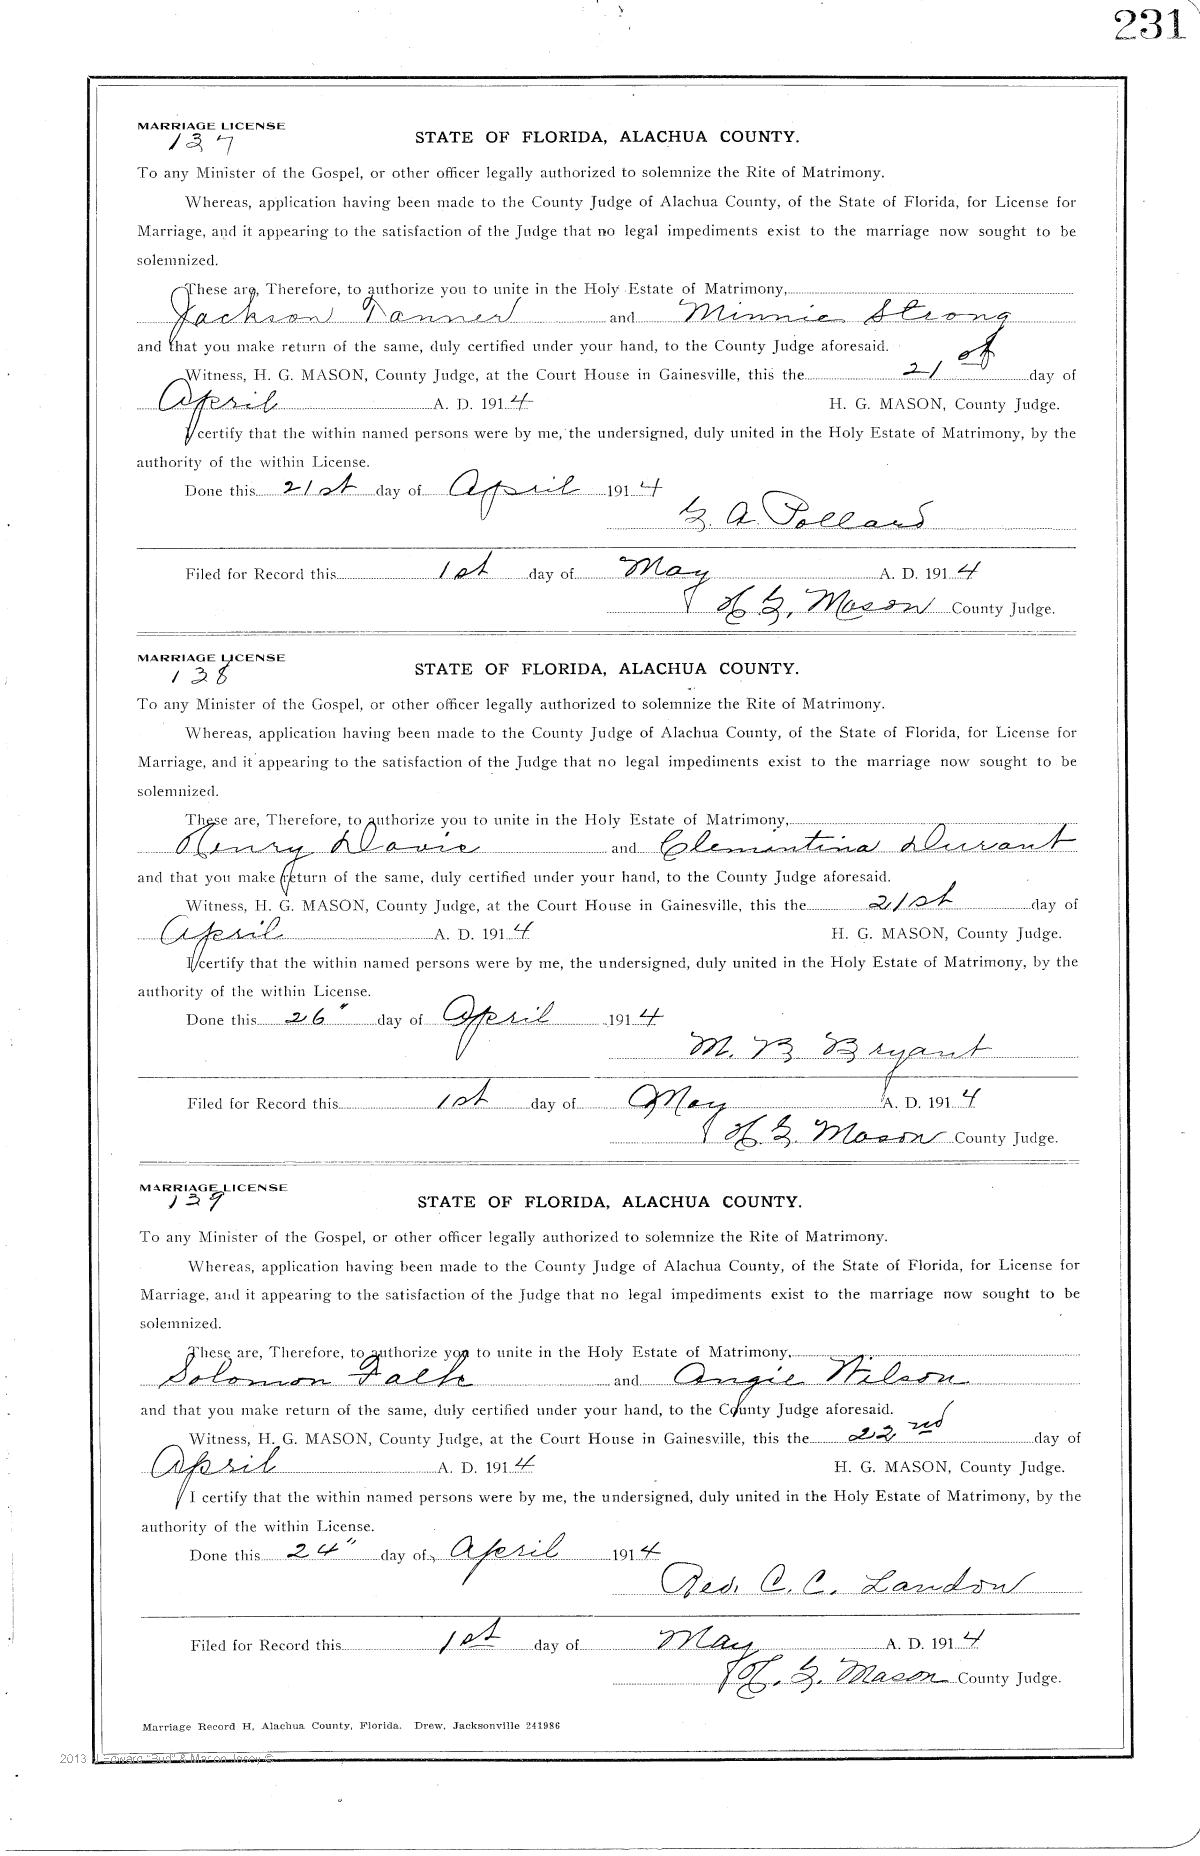 231
MARRIAGE LICENSE
137
STATE OF FLORIDA, ALACHUA COUNTY.
To any Minister of the Gospel, or other officer legally authorized to solemnize the Rite of Matrimony.
Whereas, application having been made to the County Judge of Alachua County, of the State of Florida, for License for
Marriage, and it appearing to the satisfaction of the Judge that no legal impediments exist to the marriage now sought to be
solemnized.
These are, Therefore, to authorize you to unite in the Holy Estate of Matrimony,
Jackson Tanner and Minnie Strong
and that you make return of the same, duly certified under your hand, to the County Judge aforesaid.
Witness, H. G. MASON, County Judge, at the Court House in Gainesville, this the 21st day of
April A. D. 1914 H. G. MASON, County Judge.
I certify that the within named persons were by me, the undersigned, duly united in the Holy Estate of Matrimony, by the
authority of the within License.
Done this 21st day of April 1914
G. A. Pollard
Filed for Record this 1st day of May A. D. 1914
H. G. Mason County Judge.
MARRIAGE LICENSE
138
STATE OF FLORIDA, ALACHUA COUNTY.
To any Minister of the Gospel, or other officer legally authorized to solemnize the Rite of Matrimony.
Whereas, application having been made to the County Judge of Alachua County, of the State of Florida, for License for
Marriage, and it appearing to the satisfaction of the Judge that no legal impediments exist to the marriage now sought to be
solemnized.
These are, Therefore, to authorize you to unite in the Holy Estate of Matrimony,
Henry Davis and Clemintina Durant
and that you make return of the same, duly certified under your hand, to the County Judge aforesaid.
Witness, H. G. MASON, County Judge, at the Court House in Gainesville, this the 21st day of
April A. D. 1914 H. G. MASON, County Judge.
I certify that the within named persons were by me, the undersigned, duly united in the Holy Estate of Matrimony, by the
authority of the within License.
Done this 26" day of April 1914
M. B. Bryant
Filed for Record this 1st day of May A. D. 1914
H. G. Mason County Judge.
MARRIAGE LICENSE
139
STATE OF FLORIDA, ALACHUA COUNTY.
To any Minister of the Gospel, or other officer legally authorized to solemnize the Rite of Matrimony.
Whereas, application having been made to the County Judge of Alachua County, of the State of Florida, for License for
Marriage, and it appearing to the satisfaction of the Judge that no legal impediments exist to the marriage now sought to be
solemnized.
These are, Therefore, to authorize you to unite in the Holy Estate of Matrimony,
Solomon Falk and Angie Wilson
and that you make return of the same, duly certified under your hand, to the County Judge aforesaid.
Witness, H. G. MASON, County Judge, at the Court House in Gainesville, this the 22nd day of
April A. D. 1914 H. G. MASON, County Judge.
I certify that the within named persons were by me, the undersigned, duly united in the Holy Estate of Matrimony, by the
authority of the within License.
Done this 24" day of April 1914
Rev. C. C. Landon
Filed for Record this 1st day of May A. D. 1914
H. G. Mason County Judge.
Marriage Record H, Alachua County, Florida. Drew, Jacksonville 241986
2013